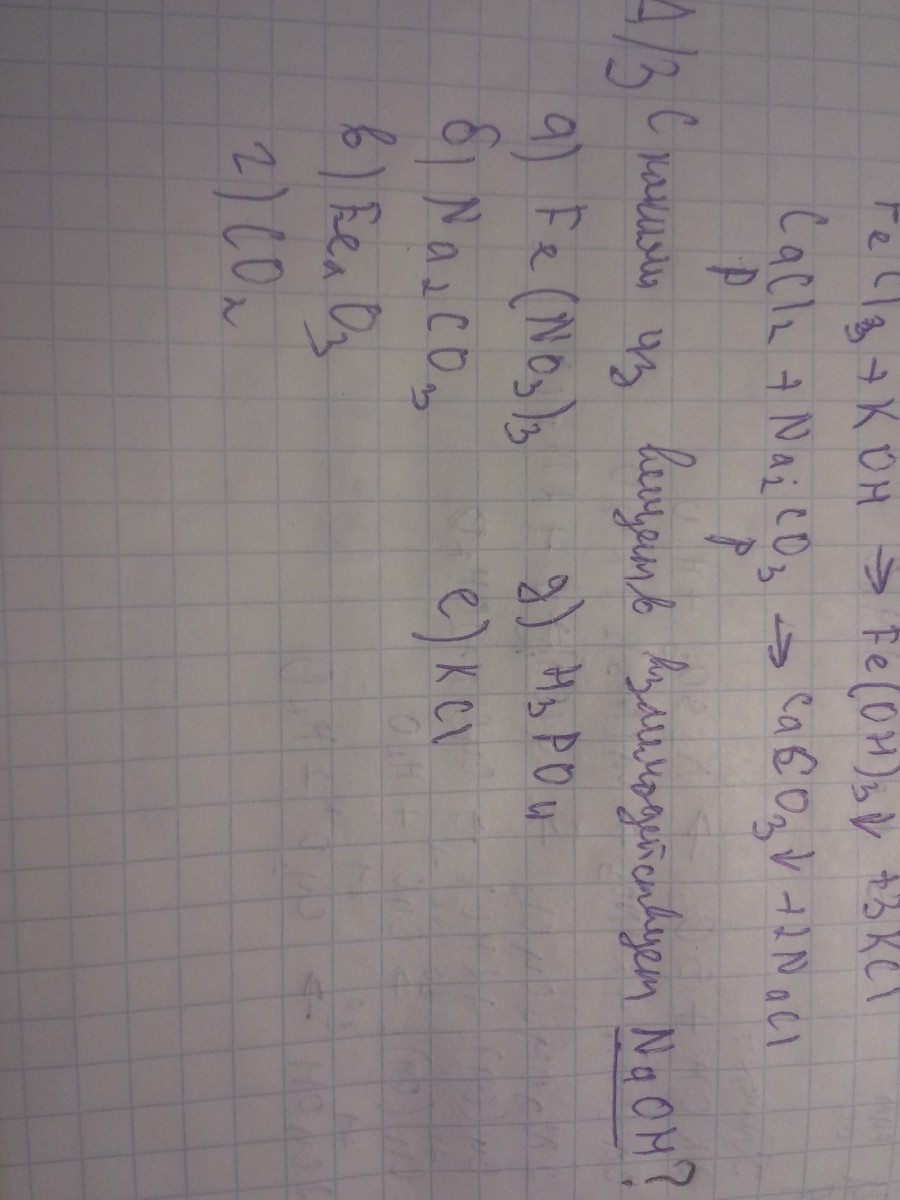 FeCl₃ + KOH → Fe(OH)₃↓ + 3KCl
CaCl₂ + Na₂CO₃ → CaCO₃↓ + 2NaCl
р р
Д/З С какими из веществ взаимодействует NaOH?
а) Fe(NO₃)₃ д) H₃PO₄
б) Na₂CO₃ е) KCl
в) Fe₂O₃
г) CO₂